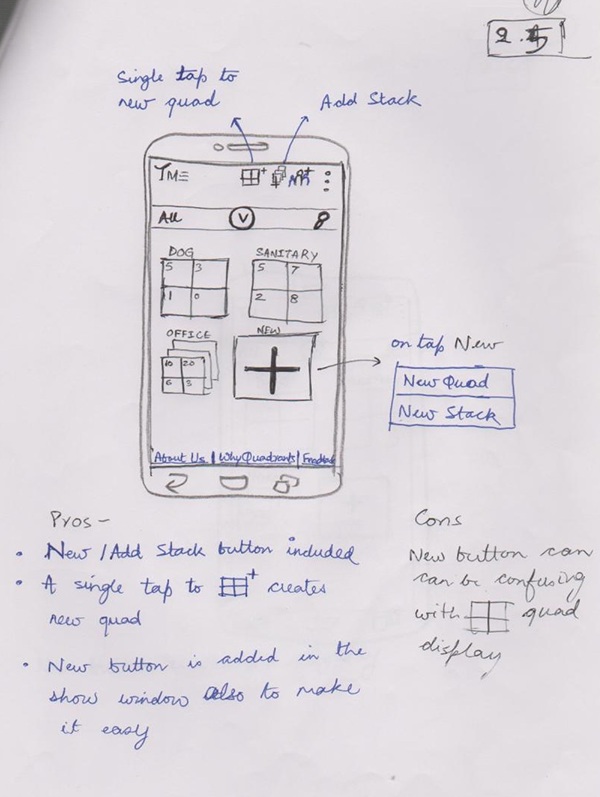 2.5
Single tap to
new quad
Add Stack
TME
All
8
DOG
5 3
1 0
SANITARY
5 7
2 8
OFFICE
10 20
6 3
NEW
on tap New
New Quad
New Stack
About Us | Why Quadrants | Feedback
Pros -
• New / Add Stack button included
• A single tap to + creates
new quad
• New button is added in the
show window also to make
it easy
Cons
New button can
can be confusing
with quad
display